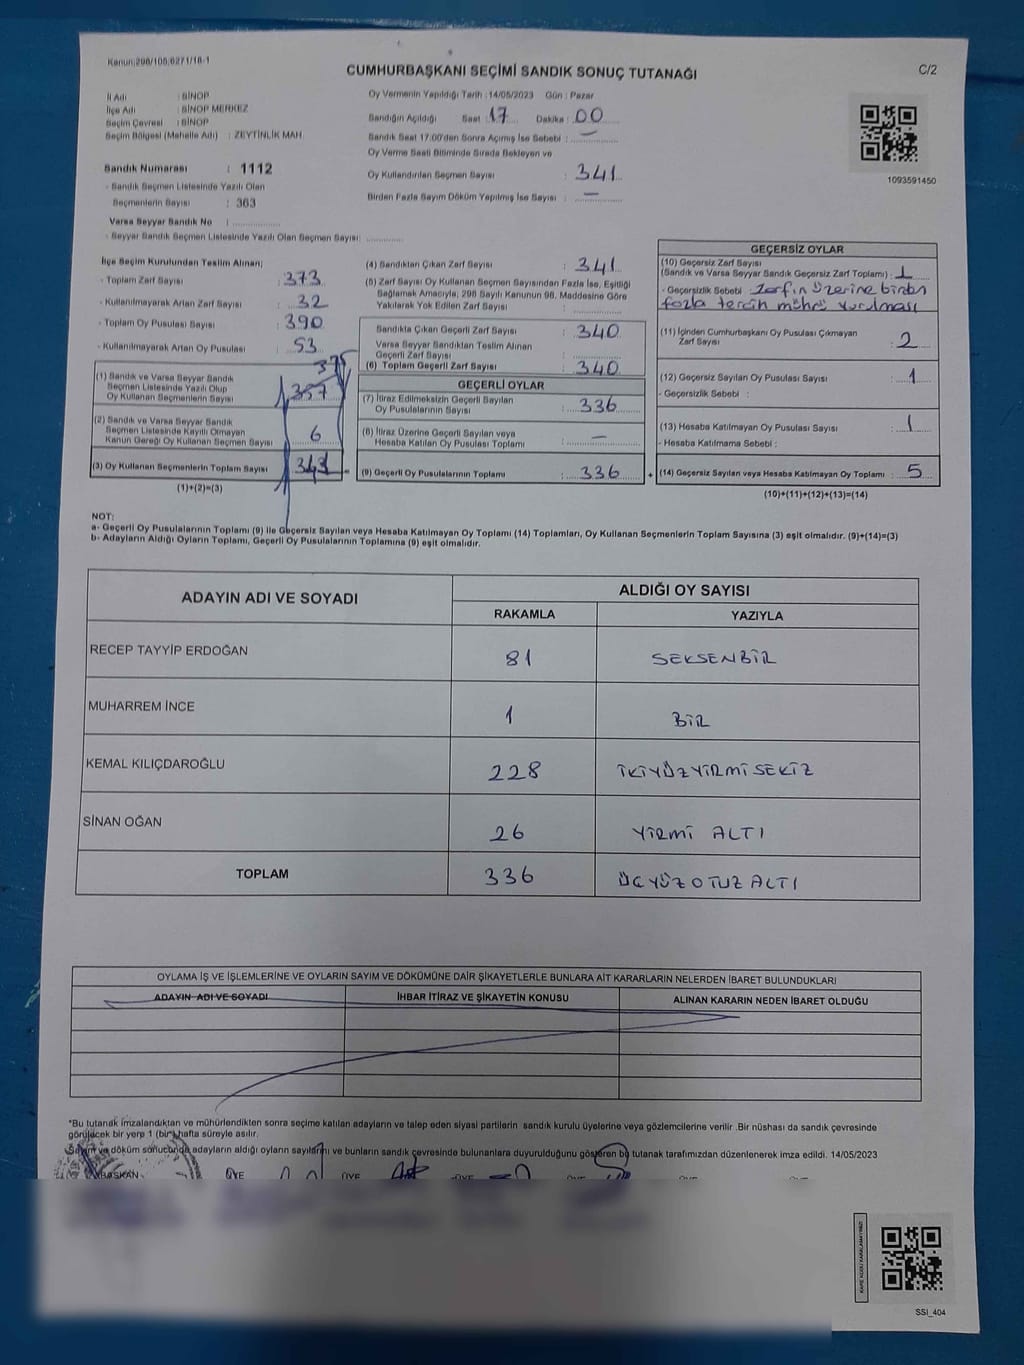 Kanun;298/105;6271/18-1
CUMHURBAŞKANI SEÇİMİ SANDIK SONUÇ TUTANAĞI
C/2
İl Adı : SİNOP
İlçe Adı : SİNOP MERKEZ
Seçim Çevresi : SİNOP
Seçim Bölgesi (Mahalle Adı) : ZEYTİNLİK MAH.
Sandık Numarası : 1112
- Sandık Seçmen Listesinde Yazılı Olan
Seçmenlerin Sayısı : 363
Varsa Seyyar Sandık No :
- Seyyar Sandık Seçmen Listesinde Yazılı Olan Seçmen Sayısı:
Oy Vermenin Yapıldığı Tarih :14/05/2023 Gün : Pazar
Sandığın Açıldığı Saat : 17 Dakika : 00
Sandık Saat 17:00'den Sonra Açımış İse Sebebi : —
Oy Verme Saati Bitiminde Sırada Bekleyen ve
Oy Kullandırılan Seçmen Sayısı : 341
Birden Fazla Sayım Döküm Yapılmış İse Sayısı : —
1093591450
İlçe Seçim Kurulundan Teslim Alınan;
- Toplam Zarf Sayısı : 373
- Kullanılmayarak Artan Zarf Sayısı : 32
- Toplam Oy Pusulası Sayısı : 390
- Kullanılmayarak Artan Oy Pusulası : 53
(1) Sandık ve Varsa Seyyar Sandık
Seçmen Listesinde Yazılı Olup
Oy Kullanan Seçmenlerin Sayısı
(2) Sandık ve Varsa Seyyar Sandık
Seçmen Listesinde Kayıtlı Olmayan
Kanun Gereği Oy Kullanan Seçmen Sayısı : 6
(3) Oy Kullanan Seçmenlerin Toplam Sayısı :
(1)+(2)=(3)
(4) Sandıktan Çıkan Zarf Sayısı : 341
(5) Zarf Sayısı Oy Kullanan Seçmen Sayısından Fazla İse, Eşitliği
Sağlamak Amacıyla; 298 Sayılı Kanunun 98. Maddesine Göre
Yakılarak Yok Edilen Zarf Sayısı :
Sandıkta Çıkan Geçerli Zarf Sayısı : 340
Varsa Seyyar Sandıktan Teslim Alınan
Geçerli Zarf Sayısı :
(6) Toplam Geçerli Zarf Sayısı : 340
GEÇERLİ OYLAR
(7) İtiraz Edilmeksizin Geçerli Sayılan
Oy Pusulalarının Sayısı : 336
(8) İtiraz Üzerine Geçerli Sayılan veya
Hesaba Katılan Oy Pusulası Toplamı : —
(9) Geçerli Oy Pusulalarının Toplamı : 336
GEÇERSİZ OYLAR
(10) Geçersiz Zarf Sayısı
(Sandık ve Varsa Seyyar Sandık Geçersiz Zarf Toplamı) : 1
- Geçersizlik Sebebi : Zarfın üzerine birden
fazla tercih mührü vurulması
(11) İçinden Cumhurbaşkanı Oy Pusulası Çıkmayan
Zarf Sayısı : 2
(12) Geçersiz Sayılan Oy Pusulası Sayısı : 1
- Geçersizlik Sebebi :
(13) Hesaba Katılmayan Oy Pusulası Sayısı : 1
- Hesaba Katılmama Sebebi :
(14) Geçersiz Sayılan veya Hesaba Katılmayan Oy Toplamı : 5
(10)+(11)+(12)+(13)=(14)
NOT:
a- Geçerli Oy Pusulalarının Toplamı (9) ile Geçersiz Sayılan veya Hesaba Katılmayan Oy Toplamı (14) Toplamları, Oy Kullanan Seçmenlerin Toplam Sayısına (3) eşit olmalıdır. (9)+(14)=(3)
b- Adayların Aldığı Oyların Toplamı, Geçerli Oy Pusulalarının Toplamına (9) eşit olmalıdır.
ADAYIN ADI VE SOYADI
ALDIĞI OY SAYISI
RAKAMLA YAZIYLA
RECEP TAYYİP ERDOĞAN 81 SEKSENBİR
MUHARREM İNCE 1 BİR
KEMAL KILIÇDAROĞLU 228 İKİYÜZYİRMİSEKİZ
SİNAN OĞAN 26 YİRMİ ALTI
TOPLAM 336 ÜÇYÜZOTUZALTI
OYLAMA İŞ VE İŞLEMLERİNE VE OYLARIN SAYIM VE DÖKÜMÜNE DAİR ŞİKAYETLERLE BUNLARA AİT KARARLARIN NELERDEN İBARET BULUNDUKLARI
ADAYIN ADI VE SOYADI İHBAR İTİRAZ VE ŞİKAYETİN KONUSU ALINAN KARARIN NEDEN İBARET OLDUĞU
*Bu tutanak imzalandıktan ve mühürlendikten sonra seçime katılan adayların ve talep eden siyasi partilerin sandık kurulu üyelerine veya gözlemcilerine verilir .Bir nüshası da sandık çevresinde
görülecek bir yere 1 (bir) hafta süreyle asılır.
Sayım ve döküm sonucunda adayların aldığı oyların sayılarını ve bunların sandık çevresinde bulunanlara duyurulduğunu gösteren bu tutanak tarafımızdan düzenlenerek imza edildi. 14/05/2023
BAŞKAN ÜYE ÜYE ÜYE ÜYE
SSI_404